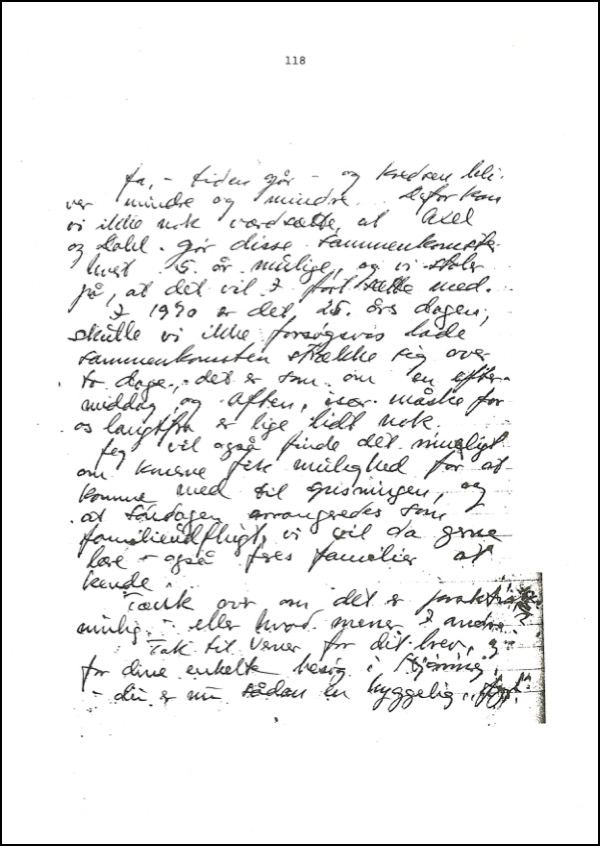 118
Ja, - tiden går - og kredsen bli-
ver mindre og mindre. Derfor kan
vi ikke nok værdsætte, at Axel
og Dahl. gør disse sammenkomster
hvert 5. år mulige, og vi stoler
på, at det vil I fortsætte med.
I 1990 er det 25. års dagen,
skulle vi ikke forsøgsvis lade
sammenkomsten strække sig over
to dage, - det er som om en efter-
middag og aften, især måske for
os langtfra er lige lidt nok.
Jeg vil også finde det rimeligt
om konerne fik mulighed for at
komme med til spisningen, og
at søndagen arrangeredes som
familieudflugt, vi vil da gerne
lære - også jeres familier at
kende.
Tænk over om det er praktisk
mulig. - eller hvad mener I andre?
Tak til Verner for dit brev, og
for dine enkelte besøg i Hjørring,
- du er nu sådan en hyggelig "fyr."